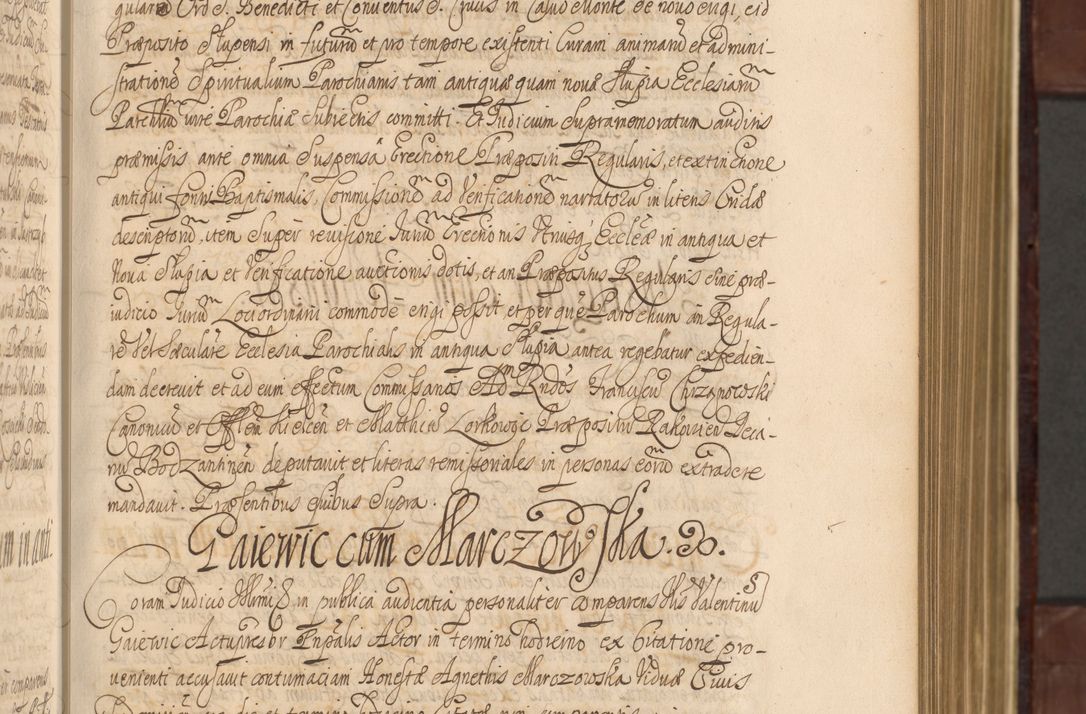 gularē Ord S. Benedicti et Conventus S. Crucis in Calvo Monte de novo erigi, eid
Præposito Slupensi in futurū et pro tempore existenti Curam animarū et admini-
strationē Spiritualium Parochianis tam antiquæ quam novæ Slupia Ecclesiarū
Parchliū iure Parochiæ Subiectis committi. Et Iudicium Supramemoratum auditis
præmissis ante omnia Suspensa Erectione Præpositi Regularis, et extinctione
antiqui fontis Baptismalis, Commissionē ad Verificationē narratorū in literis Cridæ
descriptorū, item Super revisione Iuriū Erectionis Utriusq Eccleæ in antiqua et
Nova Slupia et Verificatione auctionis dotis, et an Præpositus Regularis sine præ-
iudicio Iuriū Lociordinarii commodè erigi possit, et per quē Parochum an Regula-
rē Vel Sæculare Ecclesia Parochialis in antiqua Slupia antea regebatur expedien-
dam decrevit et ad eum effectum Commissarios Ad Rndos Franciscū Chrzanowski
Canonicū et Offlem Kielcen et Matthiæ Lorkowic Præpositū Rakovien Deca-
nū Bodzantinen deputavit et literas remissoriales in personas eorū extradere
mandavit. Præsentibus Quibus Supra.
Gaiewic cum Marczowska. 30.
Coram Iudicio in publica audientia personaliter comparens Valentinus
Gaiewic Actu præsbr Inpalis Actor in termino hodierno ex Citatione pro-
venienti accusavit contumaciam Honestæ Agnethis Marczowska Viduæ Civis